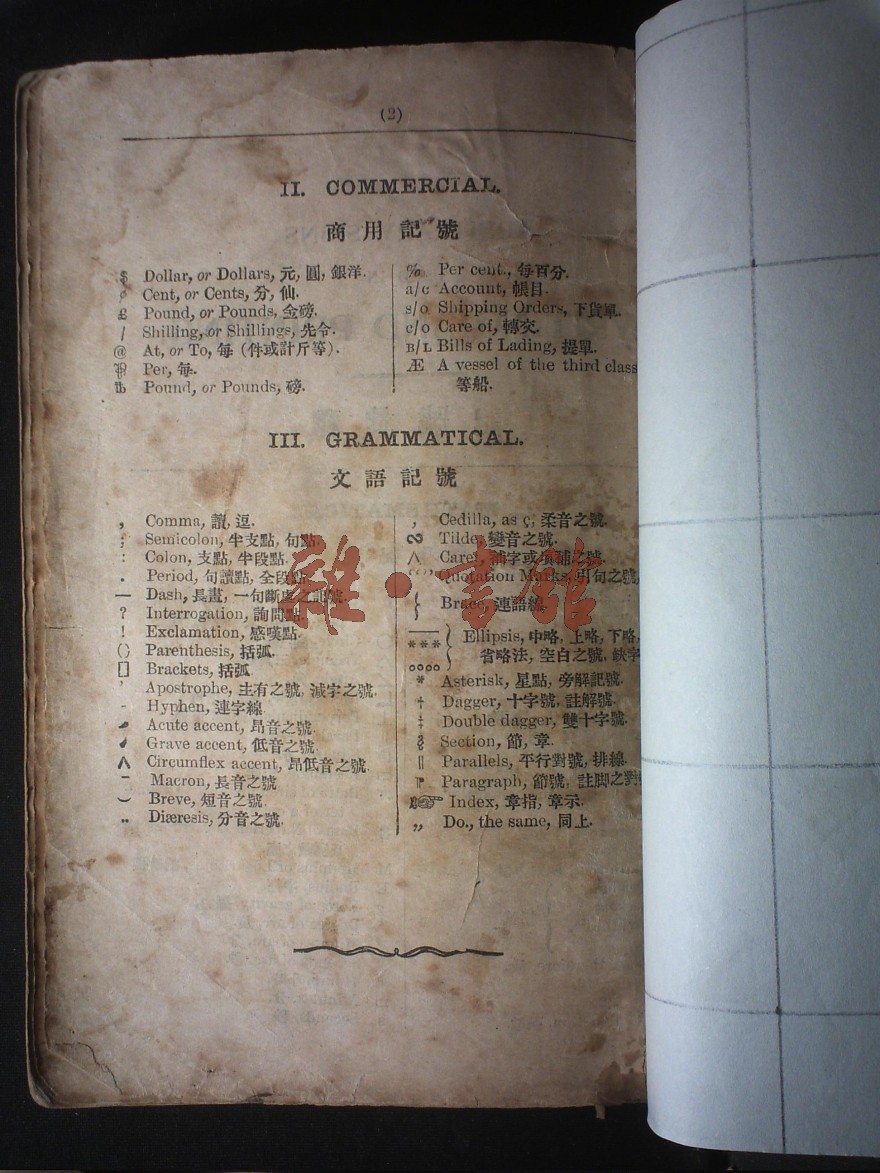 (2)
II. COMMERCIAL.
商用記號
$ Dollar, or Dollars, 元, 圓, 銀洋.
¢ Cent, or Cents, 分, 仙.
£ Pound, or Pounds, 金磅.
/ Shilling, or Shillings, 先令.
@ At, or To, 每 (件或計斤等).
⅌ Per, 每.
℔ Pound, or Pounds, 磅.
% Per cent., 每百分.
a/c Account, 帳目.
s/o Shipping Orders, 下貨單.
c/o Care of, 轉交.
B/L Bills of Lading, 提單.
Æ A vessel of the third class
等船.
III. GRAMMATICAL.
文語記號
, Comma, 讀, 逗.
; Semicolon, 半支點, 句點.
: Colon, 支點, 半段點.
. Period, 句讀點, 全段點.
— Dash, 長畫, 一句斷處之記號.
? Interrogation, 詢問點.
! Exclamation, 感嘆點.
() Parenthesis, 括弧.
[] Brackets, 括弧
' Apostrophe, 主有之號, 減字之號.
- Hyphen, 連字線
Acute accent, 昂音之號.
Grave accent, 低音之號.
Circumflex accent, 昂低音之號.
¯ Macron, 長音之號
˘ Breve, 短音之號.
¨ Diæresis, 分音之號.
¸ Cedilla, as ç, 柔音之號.
~ Tilde, 變音之號.
^ Caret, 補字或填補之號.
Quotation Marks, 引句之號,
{ Brace, 連語線.
*** } Ellipsis, 中略, 上略, 下略,
省略法, 空白之號, 缺字
* Asterisk, 星點, 旁解記號.
† Dagger, 十字號, 註解號.
‡ Double dagger, 雙十字號.
§ Section, 節, 章.
‖ Parallels, 平行對號, 排線.
¶ Paragraph, 節號, 註脚之對
☞ Index, 章指, 章示.
„ Do., the same, 同上.
雜·書館